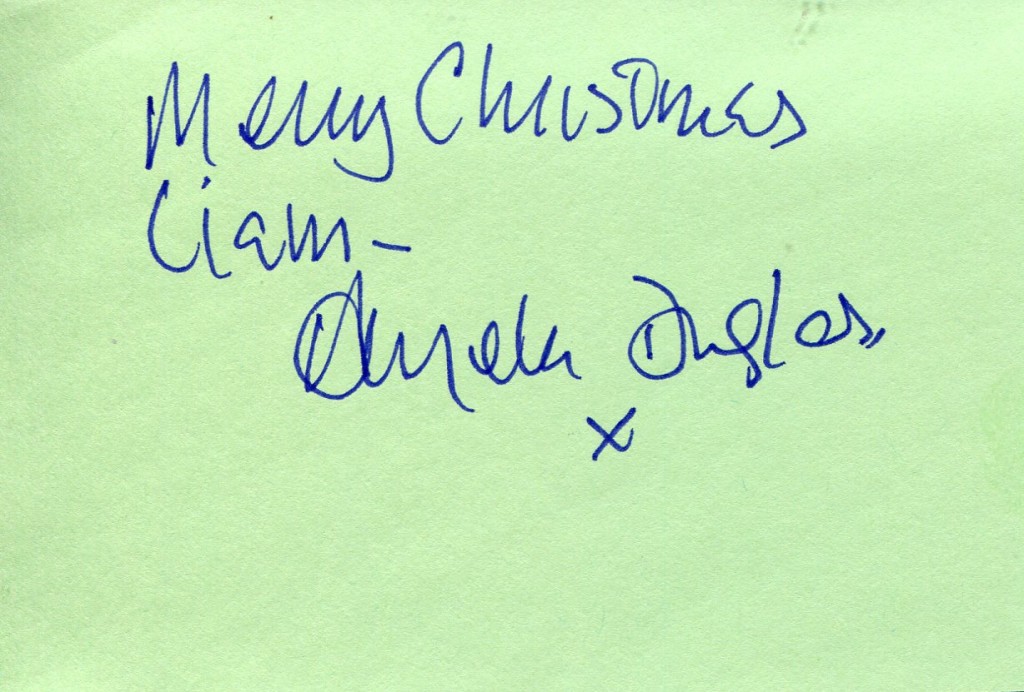 Merry Christmas
Liam –
Angela Douglas
x